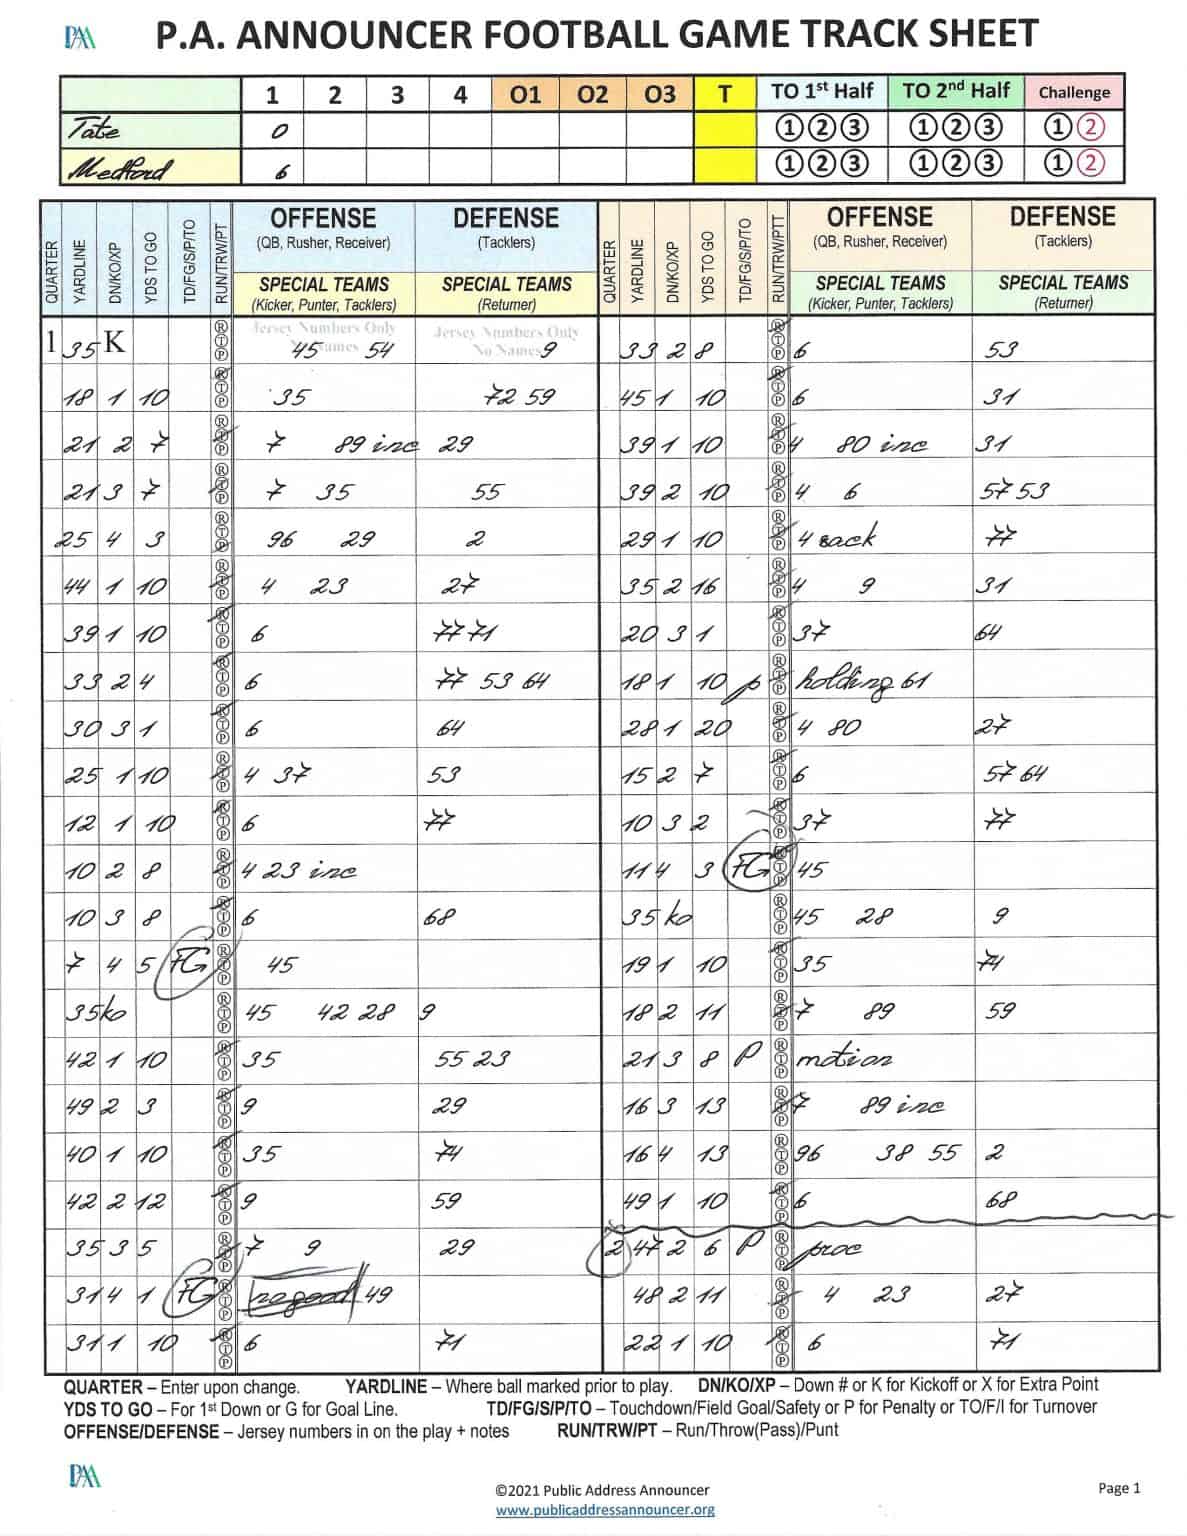 PAA P.A. ANNOUNCER FOOTBALL GAME TRACK SHEET
1 2 3 4 O1 O2 O3 T TO 1st Half TO 2nd Half Challenge
Tate 0 1 2 3 1 2 3 1 2
Medford 6 1 2 3 1 2 3 1 2
QUARTER YARDLINE DN/KO/XP YDS TO GO TD/FG/S/P/TO RUN/TRW/PT
OFFENSE
(QB, Rusher, Receiver)
SPECIAL TEAMS
(Kicker, Punter, Tacklers)
DEFENSE
(Tacklers)
SPECIAL TEAMS
(Returner)
Jersey Numbers Only
No Names
Jersey Numbers Only
No Names
1 35 K R T P 45 54 9
18 1 10 R T P 35 72 59
21 2 7 R T P 7 89 inc 29
21 3 7 R T P 7 35 55
25 4 3 R T P 96 29 2
44 1 10 R T P 4 23 27
39 1 10 R T P 6 77 71
33 2 4 R T P 6 77 53 64
30 3 1 R T P 6 64
25 1 10 R T P 4 37 53
12 1 10 R T P 6 77
10 2 8 R T P 4 23 inc
10 3 8 R T P 6 68
7 4 5 FG R T P 45
35 ko R T P 45 42 28 9
42 1 10 R T P 35 55 23
49 2 3 R T P 9 29
40 1 10 R T P 35 74
42 2 12 R T P 9 59
35 3 5 R T P 7 9 29
31 4 1 FG R T P no good 49
31 1 10 R T P 6 71
QUARTER YARDLINE DN/KO/XP YDS TO GO TD/FG/S/P/TO RUN/TRW/PTT
OFFENSE
(QB, Rusher, Receiver)
SPECIAL TEAMS
(Kicker, Punter, Tacklers)
DEFENSE
(Tacklers)
SPECIAL TEAMS
(Returner)
33 2 8 R T P 6 53
45 1 10 R T P 6 31
39 1 10 R T P 4 80 inc 31
39 2 10 R T P 4 6 57 53
29 1 10 R T P 4 sack 77
35 2 16 R T P 4 9 31
20 3 1 R T P 37 64
18 1 10 p R T P holding 61
28 1 20 R T P 4 80 27
15 2 7 R T P 6 57 64
10 3 2 R T P 37 77
11 4 3 FG R T P 45
35 ko R T P 45 28 9
19 1 10 R T P 35 74
18 2 11 R T P 7 89 59
21 3 8 P R T P motion
16 3 13 R T P 7 89 inc
16 4 13 R T P 96 38 55 2
49 1 10 R T P 6 68
2 47 2 6 P R T P proc
48 2 11 R T P 4 23 27
22 1 10 R T P 6 71
QUARTER – Enter upon change. YARDLINE – Where ball marked prior to play. DN/KO/XP – Down # or K for Kickoff or X for Extra Point
YDS TO GO – For 1st Down or G for Goal Line. TD/FG/S/P/TO – Touchdown/Field Goal/Safety or P for Penalty or TO/F/I for Turnover
OFFENSE/DEFENSE – Jersey numbers in on the play + notes RUN/TRW/PT – Run/Throw(Pass)/Punt
PAA
©2021 Public Address Announcer
www.publicaddressannouncer.org
Page 1